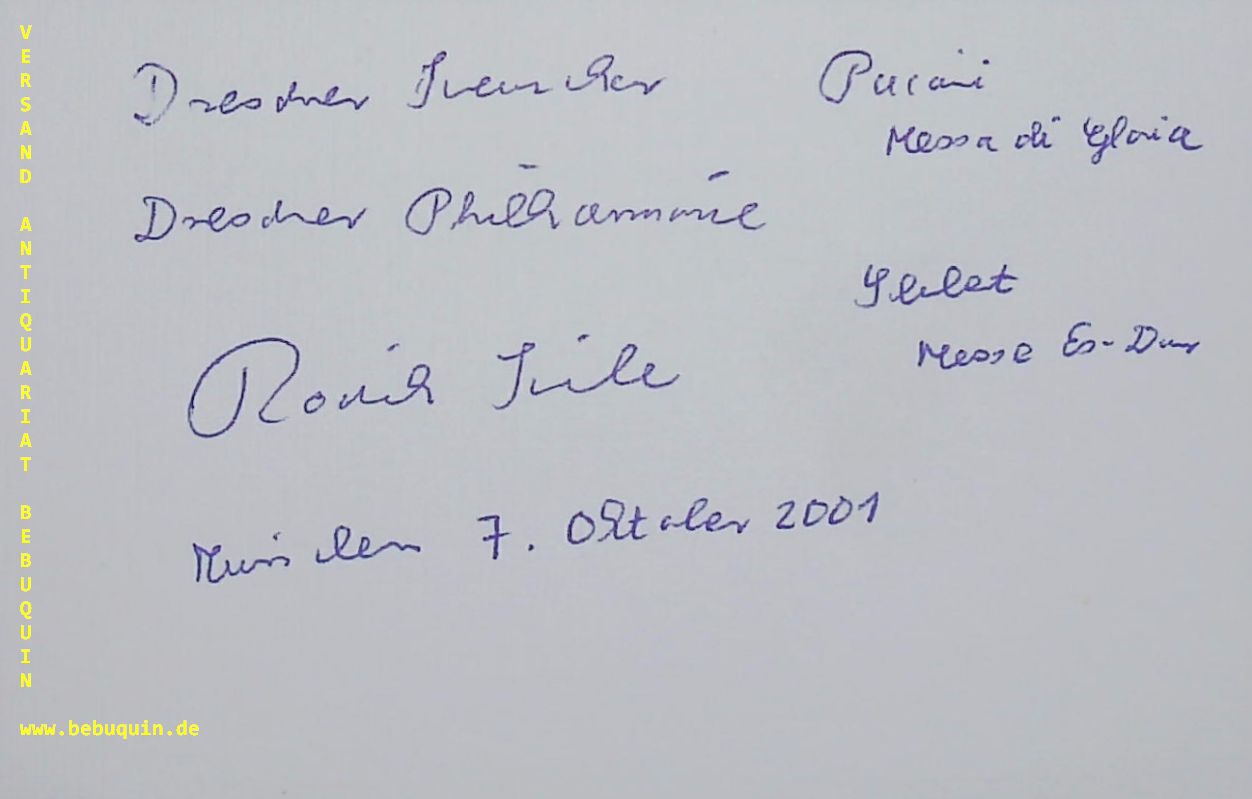 VERSAND ANTIQUARIAT BEBUQUIN
Dresdner
Puccini
Messa di Gloria
Dresdner Philharmonie
Messe Es-Dur
Roderich
München 7. Oktober 2001
www.bebuquin.de